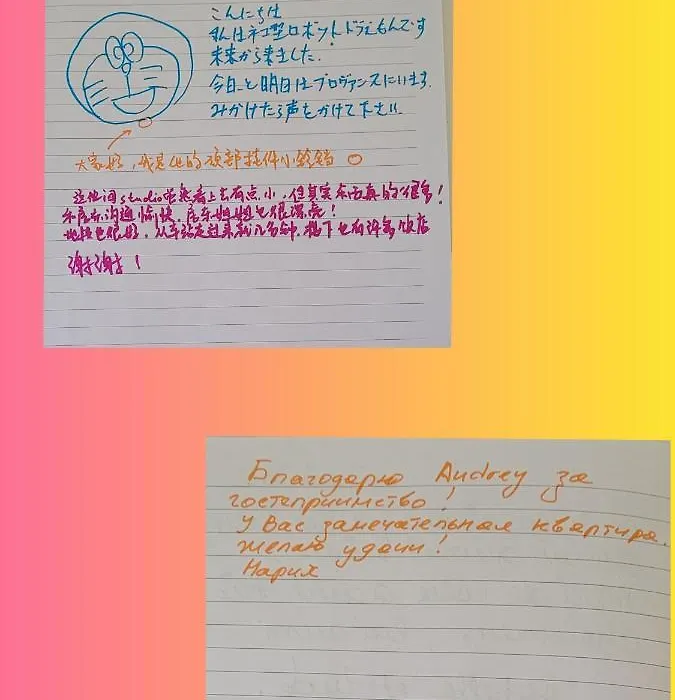 こんにちは
私はネコ型ロボットドラえもんです
未来から来ました.
今日と明日はプロヴァンスにいます.
みかけたら声をかけて下さい.
大家好,我是他的 小铃铛
这他间studio 虽然看上去有点小,但其实东西真的很多!
和房东沟通愉快,房东姐姐也很漂亮!
地段也很好,从车站走过来就几分钟,楼下也有许多饭店
谢谢!
Благодарю Audrey за
гостеприимство!
У Вас замечательная квартира.
желаю удачи!
Нарих